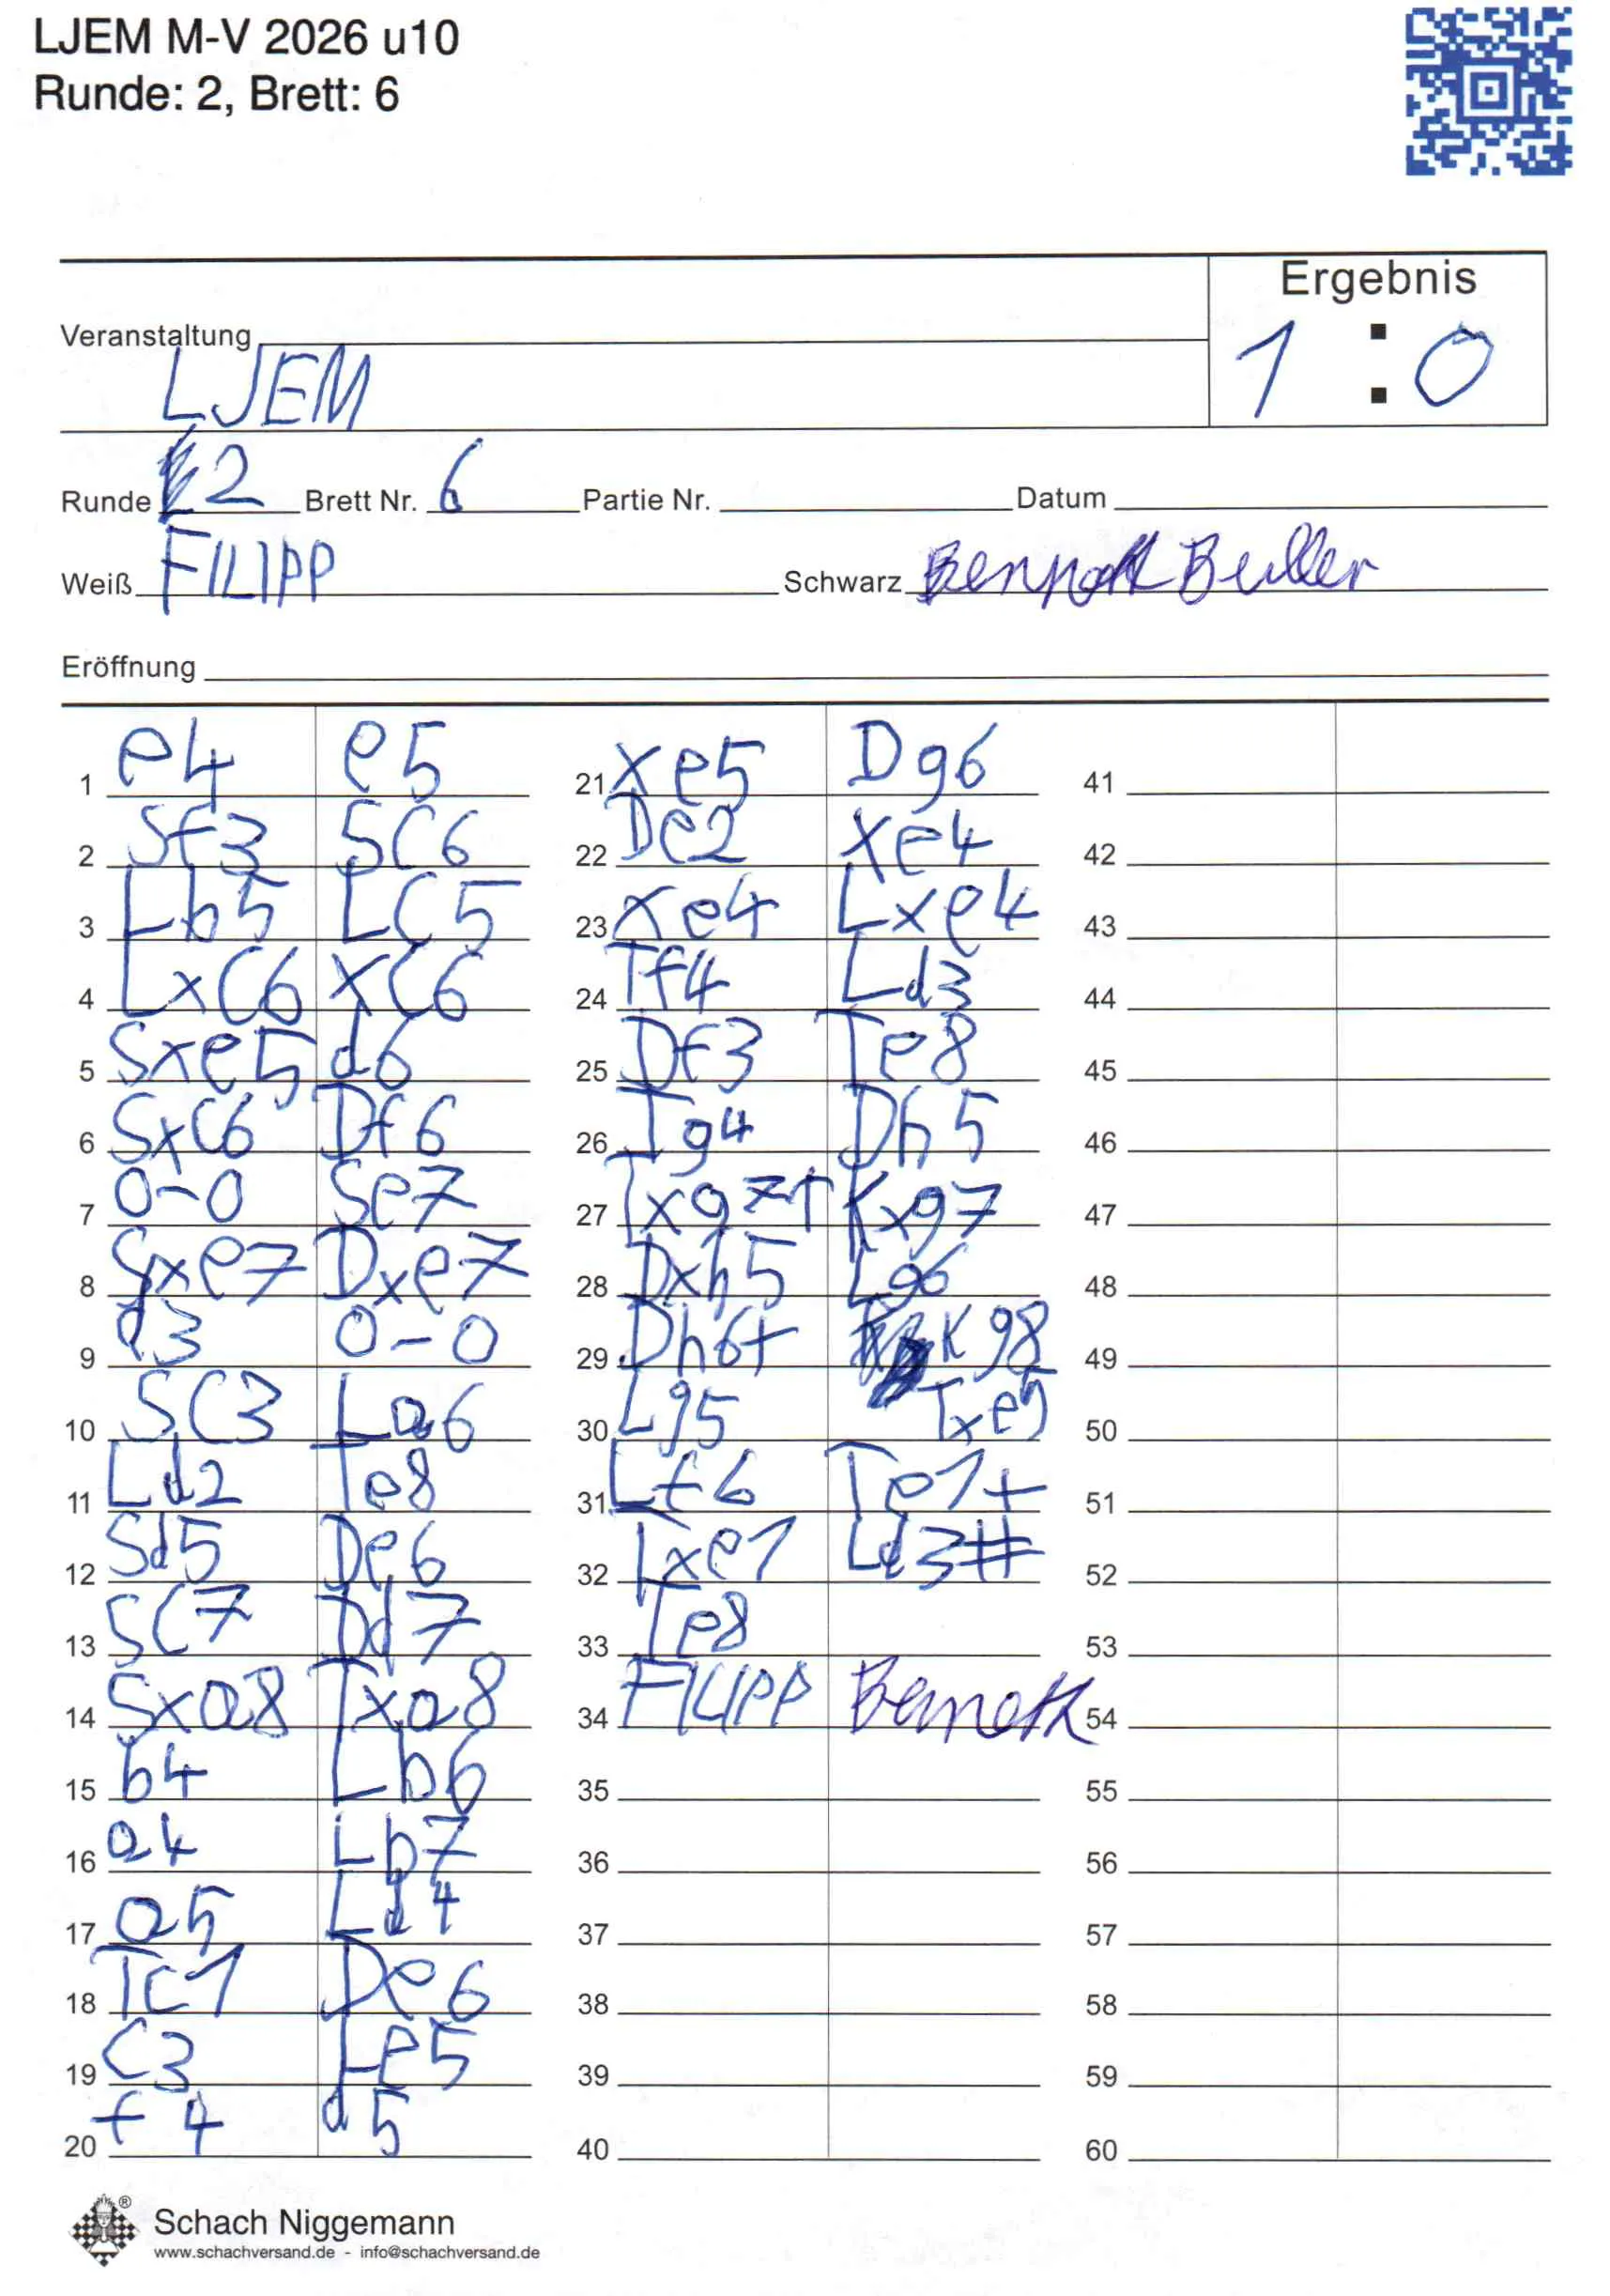 LJEM M-V 2026 u10
Runde: 2, Brett: 6
Ergebnis
1 : 0
Veranstaltung LJEM
Runde 2 Brett Nr. 6 Partie Nr. Datum
Weiß FILIPP Schwarz
Eröffnung
1 e4 e5
2 Sf3 SC6
3 Lb5 LC5
4 LxC6 xC6
5 Sxe5 d6
6 SxC6 Df6
7 0-0 Se7
8 Sxe7 Dxe7
9 d3 0-0
10 SC3 La6
11 Ld2 Te8
12 Sd5 De6
13 SC7 Dd7
14 Sxa8 Txa8
15 b4 Lb6
16 a4 Lb7
17 a5 Ld4
18 Tc1 De6
19 C3 Le5
20 f4 d5
21 xe5 Dg6
22 De2 xe4
23 xe4 Lxe4
24 Tf4 Ld3
25 Df3 Te8
26 Tg4 Dh5
27 Txg7+ Kxg7
28 Dxh5 Lg6
29 Dh6+ Kg8
30 Lg5 Txe5
31 Lf6 Te1+
32 Txe1 Ld3#
33 Te8
34 FILIPP
35
36
37
38
39
40
41
42
43
44
45
46
47
48
49
50
51
52
53
54
55
56
57
58
59
60
Schach Niggemann
www.schachversand.de - info@schachversand.de